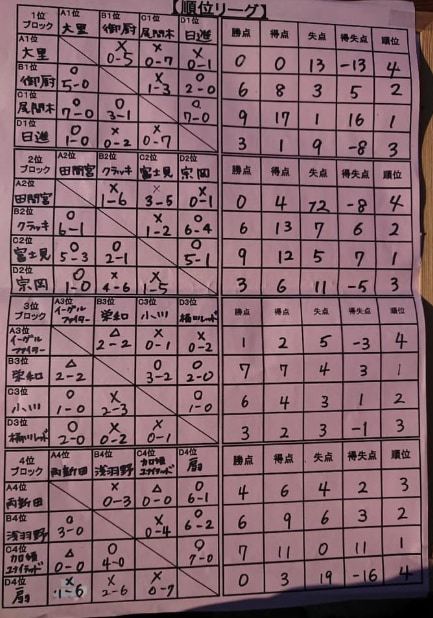 【順位リーグ】
1位ブロック A1位 大里 B1位 御厨 C1位 尾間木 D1位 日進 勝点 得点 失点 得失点 順位
A1位 大里 × 0-5 × 0-7 × 0-1 0 0 13 -13 4
B1位 御厨 ○ 5-0 × 1-3 ○ 2-0 6 8 3 5 2
C1位 尾間木 ○ 7-0 ○ 3-1 ○ 7-0 9 17 1 16 1
D1位 日進 ○ 1-0 × 0-2 × 0-7 3 1 9 -8 3
2位ブロック A2位 田間宮 B2位 クラッキ C2位 富士見 D2位 宗岡 勝点 得点 失点 得失点 順位
A2位 田間宮 × 1-6 × 3-5 × 0-1 0 4 12 -8 4
B2位 クラッキ ○ 6-1 × 1-2 ○ 6-4 6 13 7 6 2
C2位 富士見 ○ 5-3 ○ 2-1 ○ 5-1 9 12 5 7 1
D2位 宗岡 ○ 1-0 × 4-6 × 1-5 3 6 11 -5 3
3位ブロック A3位 イーグルファイター B3位 栄和 C3位 小川 D3位 勝点 得点 失点 得失点 順位
A3位 イーグルファイター △ 2-2 × 0-1 × 0-2 1 2 5 -3 4
B3位 栄和 △ 2-2 ○ 3-2 ○ 2-0 7 7 4 3 1
C3位 小川 ○ 1-0 × 2-3 ○ 1-0 6 4 3 1 2
D3位 ○ 2-0 × 0-2 × 0-1 3 2 3 -1 3
4位ブロック A4位 両新田 B4位 浅羽野 C4位 加須ユナイテッド D4位 扇 勝点 得点 失点 得失点 順位
A4位 両新田 × 0-3 △ 0-0 ○ 6-1 4 6 4 2 3
B4位 浅羽野 ○ 3-0 × 0-4 ○ 6-2 6 9 6 3 2
C4位 加須ユナイテッド △ 0-0 ○ 4-0 ○ 7-0 7 11 0 11 1
D4位 扇 × 1-6 × 2-6 × 0-7 0 3 19 -16 4